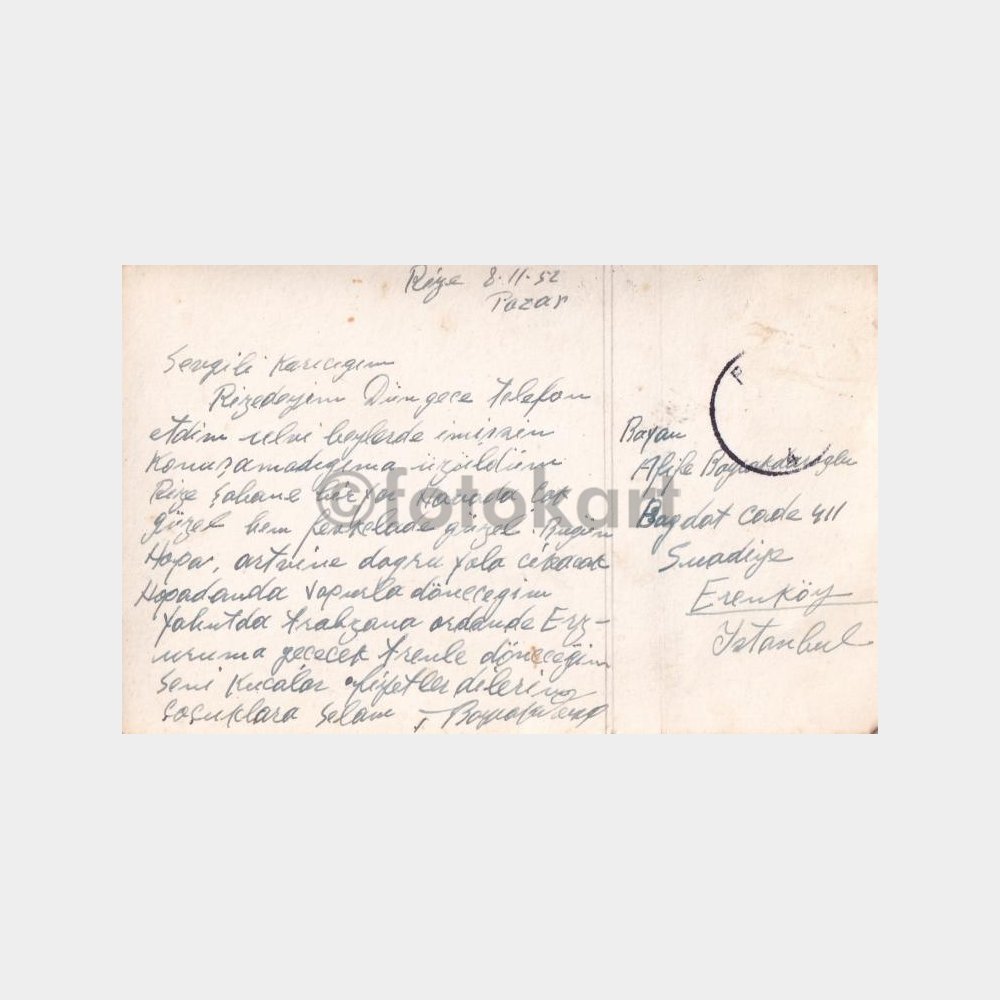 Rize 8-11-52
Pazar
Sevgili Karıcıgım
Rizedeyim Dün gece telefon
etdim ulvi beylerde imişsin
Konuşamadıgıma üzüldüm
Rize Şahane bir yer Havada Çok
güzel hem fevkelade güzel Bugün
Hopa, artvine dogru yola cıkacak
Hopadanda vapurla dönecegim
yahutda trabzana ordanda Erz-
uruma gececek trenle döneceğim
Seni Kucaklar afiyetler dilerim
Çoçuklara Selam
Bayan
Afife Bayrakdaroglu
Bagdat cade 411
Suadiye
Erenköy
Istanbul
©fotokart